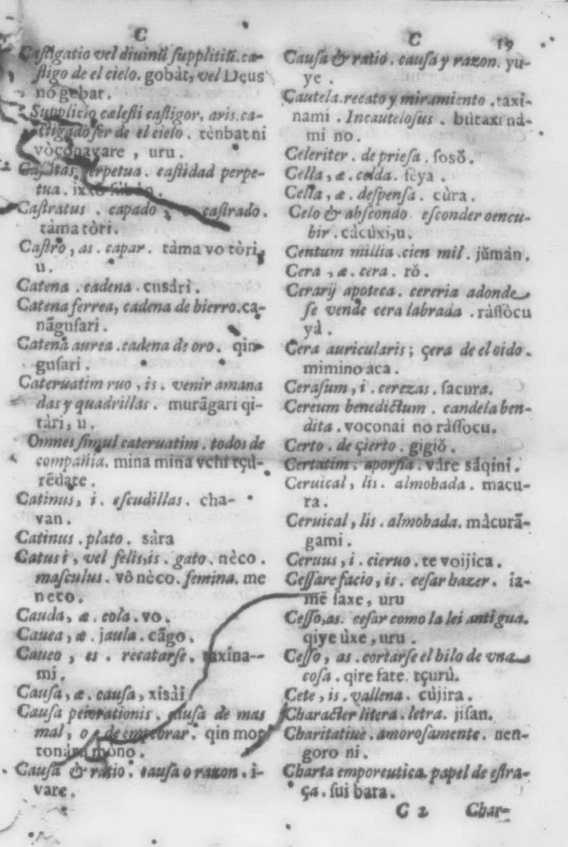 C
Castigatio vel diuinũ supplitiũ. ca-
stigo de el cielo. gobàt, vel Deus
no gobat.
Supplicio calesti castigor, aris. ca-
stigado ser de el cielo. tènbat ni
vòconavare, uru.
Castitas perpetua. castidad perpe-
tua.
Castratus. capado, castrado.
tàma tòri.
Castro, as. capar. tàma vo tòri,
u.
Catena. cadena. cusàri.
Catena ferrea, cadena de bierro. ca-
nãgusari.
Catena aurea. cadena de oro. qin
gusari.
Cateruatim ruo, is. venir a mana
das y quadrillas. murãgari qi-
tàri, u.
Omnes simul cateruatim. todos de
compañia. mina mina vchi tçu-
rẽdate.
Catinus, i. escudillas. cha-
van.
Catinus. plato. sàra
Catus i, vel felis, is. gato. nèco.
masculus. vô nèco. femina. me
neco.
Cauda, æ. cola. vo.
Cauea, æ. jaula. cãgo.
Caueo, es. recatarse. taxina-
mi.
Causa, æ. causa, xisài
Causa peiorationis. causa de mas
mal, o de empeorar. qin mot
tonàru mòno.
Causa & ratio. causa o razon. i-
vare.
C 19
Causa & ratio. causa y razon. yu-
ye.
Cautela. recato y miramiento. taxi-
nami. Incautelosus. bùtaxi nà-
mi no.
Celeriter. de priesa. sosõ.
Cella, æ. celda. sèya.
Cella, æ. despensa. cùra.
Celo & abscondo esconder o encu-
bir. càcùxi, u.
Centum millia. cien mil. jũmàn.
Cera, æ. cera. rõ.
Cerarij apoteca. cereria adonde
se vende cera labrada. ràssòcu
yà.
Cera auricularis; çera de el oido.
mimino aca.
Cerasum, i. cerezas. sacura.
Cereum benedictum. candela ben-
dita. voconai no ràssocu.
Certo. de çierto. gigiõ.
Certatim. aporsia. vàre sãqini.
Ceruical, lis. almobada. macu-
ra.
Ceruical, lis. almobada. màcurã-
gami.
Ceruus, i. cieruo. te voijica.
Cessare facio, is. cesar bazer. ia-
mẽ saxe, uru
Cesso, as. cesar como la lei antigua.
qiye ùxe, uru.
Cesso, as. cortarse el bilo de vna
cosa. qire fate. tçurù.
Cete, is. vallena. cùjira.
Character litera. letra. jisan.
Charitatiuè. amorosamente. nen-
goro ni.
Charta emporeutica. papel de estra-
ça. sui bara.
C 2 Char-